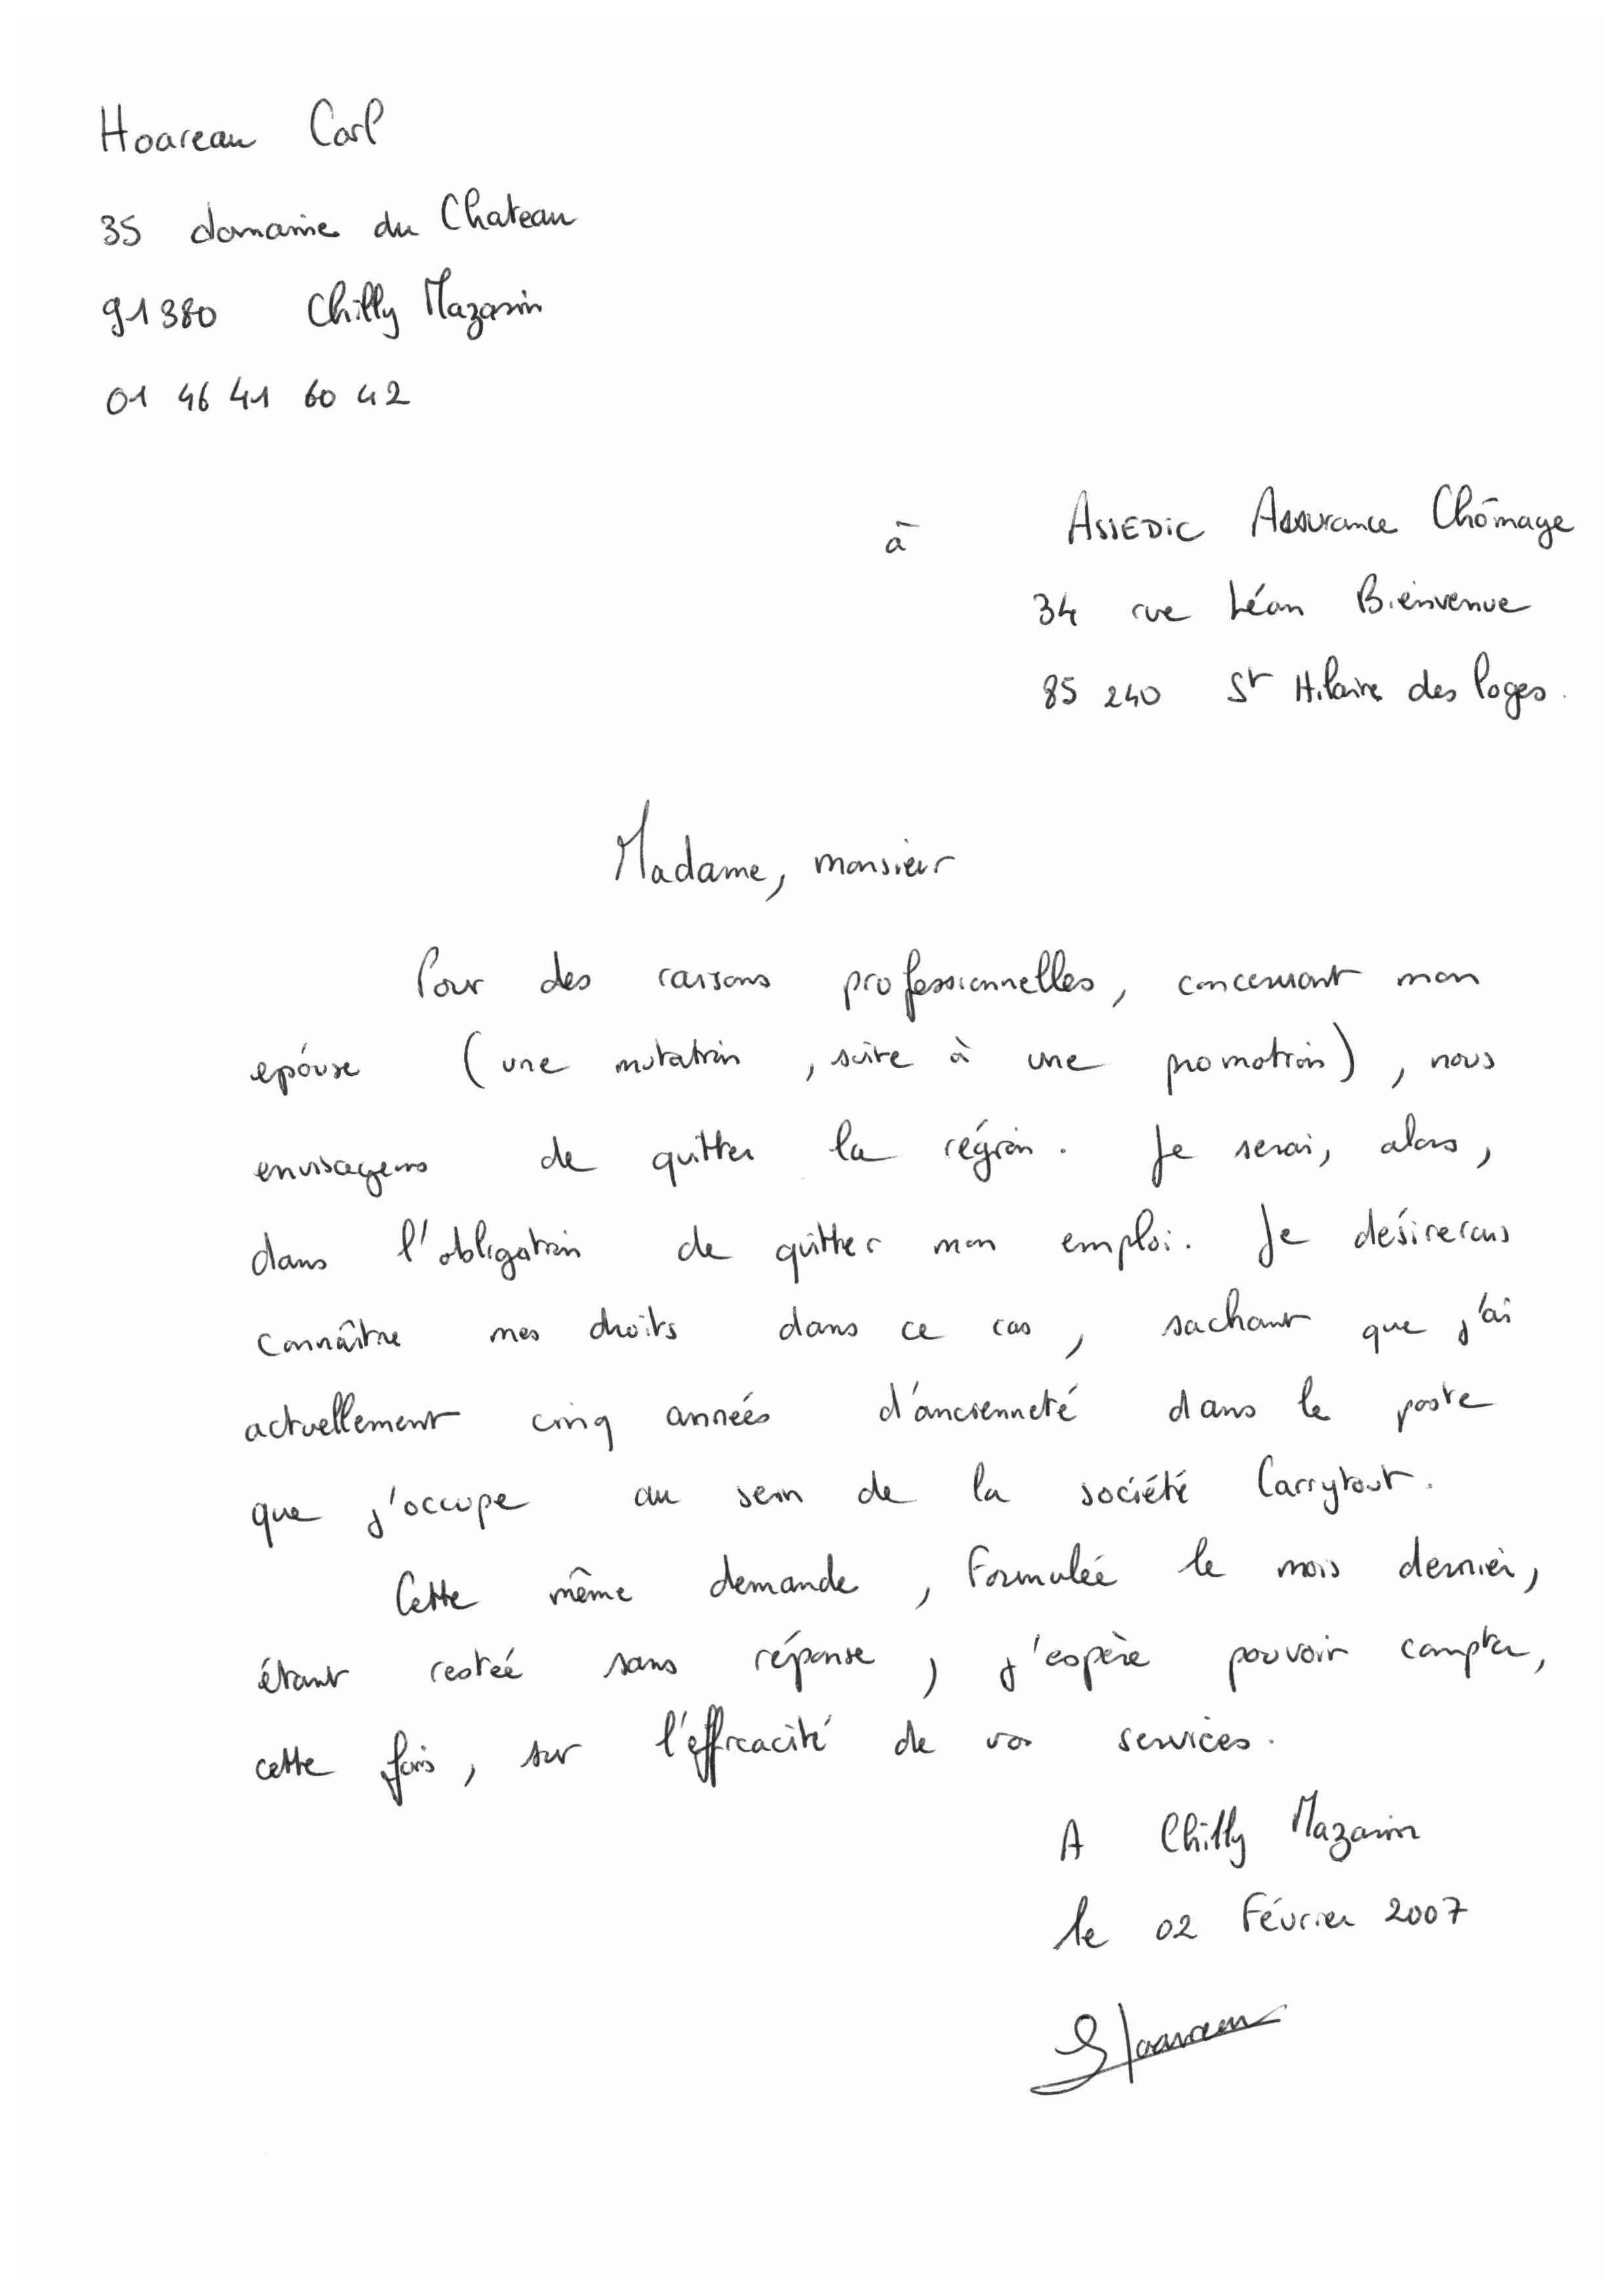 Hoareau Carl
35 domaine du Chateau
91380 Chilly Mazarin
01 46 41 60 42
à ASSEDIC Assurance Chômage
34 rue Léon Bienvenue
85 240 St Hilaire des loges.
Madame, monsieur
Pour des raisons professionnelles, concernant mon
epouse (une mutation, suite à une promotion), nous
envisageons de quitter la région. Je serai, alors,
dans l'obligation de quitter mon emploi. Je désirerais
connaître mes droits dans ce cas, sachant que j'ai
actuellement cinq années d'ancienneté dans le poste
que j'occupe au sein de la société Carrytout.
Cette même demande, Formulée le mois dernier,
étant restée sans réponse, j'espère pouvoir compter,
cette fois, sur l'efficacité de vos services.
A Chilly Mazarin
le 02 Février 2007
Hoareau